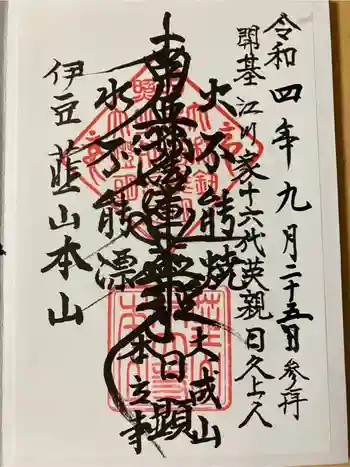 令和四年九月二十五日参拝
開基 江川家十六代英親 日久上人
火不能焼
南無妙法蓮華経
水不能漂
大成山
本立寺
日顕
伊豆 韮山本山